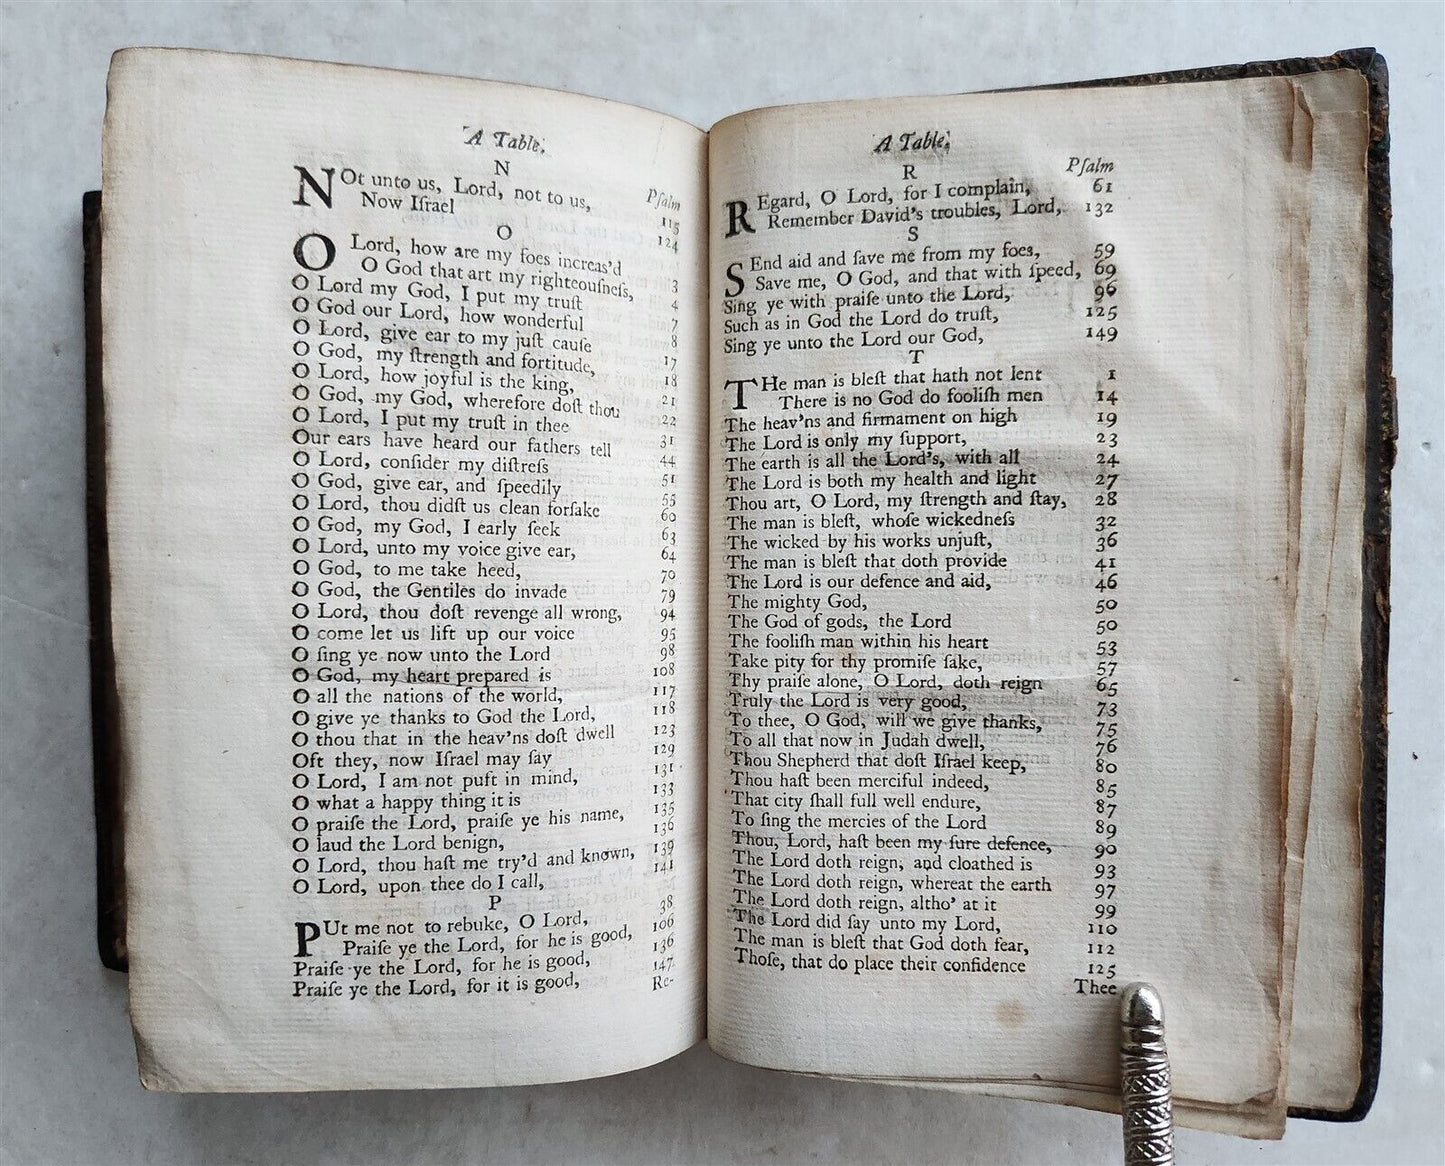 A Table.
N
Pſalm
NOt unto us, Lord, not to us, 115
Now Iſrael 124
O
O Lord, how are my foes increas'd 3
O God that art my righteouſneſs, 4
O Lord my God, I put my truſt 7
O God our Lord, how wonderful 8
O Lord, give ear to my juſt cauſe 17
O God, my ſtrength and fortitude, 18
O Lord, how joyful is the king, 21
O God, my God, wherefore doſt thou 22
O Lord, I put my truſt in thee 31
Our ears have heard our fathers tell 44
O Lord, conſider my diſtreſs 51
O God, give ear, and ſpeedily 55
O Lord, thou didſt us clean forſake 60
O God, my God, I early ſeek 63
O Lord, unto my voice give ear, 64
O God, to me take heed, 70
O God, the Gentiles do invade 79
O Lord, thou doſt revenge all wrong, 94
O come let us lift up our voice 95
O ſing ye now unto the Lord 98
O God, my heart prepared is 108
O all the nations of the world, 117
O give ye thanks to God the Lord, 118
O thou that in the heav'ns doſt dwell 123
Oft they, now Iſrael may ſay 129
O Lord, I am not puft in mind, 131
O what a happy thing it is 133
O praiſe the Lord, praiſe ye his name, 135
O laud the Lord benign, 136
O Lord, thou haſt me try'd and known, 139
O Lord, upon thee do I call, 141
P
PUt me not to rebuke, O Lord, 38
Praiſe ye the Lord, for he is good, 106
Praiſe ye the Lord, for he is good, 136
Praiſe ye the Lord, for it is good, 147
Re-
A Table.
R
Pſalm
REgard, O Lord, for I complain, 61
Remember David's troubles, Lord, 132
S
SEnd aid and ſave me from my foes, 59
Save me, O God, and that with ſpeed, 69
Sing ye with praiſe unto the Lord, 96
Such as in God the Lord do truſt, 125
Sing ye unto the Lord our God, 149
T
THe man is bleſt that hath not lent 1
There is no God do fooliſh men 14
The heav'ns and firmament on high 19
The Lord is only my ſupport, 23
The earth is all the Lord's, with all 24
The Lord is both my health and light 27
Thou art, O Lord, my ſtrength and ſtay, 28
The man is bleſt, whoſe wickedneſs 32
The wicked by his works unjuſt, 36
The man is bleſt that doth provide 41
The Lord is our defence and aid, 46
The mighty God, 50
The God of gods, the Lord 50
The fooliſh man within his heart 53
Take pity for thy promiſe ſake, 57
Thy praiſe alone, O Lord, doth reign 65
Truly the Lord is very good, 73
To thee, O God, will we give thanks, 75
To all that now in Judah dwell, 76
Thou Shepherd that doſt Iſrael keep, 80
Thou haſt been merciful indeed, 85
That city ſhall full well endure, 87
To ſing the mercies of the Lord 89
Thou, Lord, haſt been my ſure defence, 90
The Lord doth reign, and cloathed is 93
The Lord doth reign, whereat the earth 97
The Lord doth reign, altho' at it 99
The Lord did ſay unto my Lord, 110
The man is bleſt that God doth fear, 112
Thoſe, that do place their confidence 125
Thee